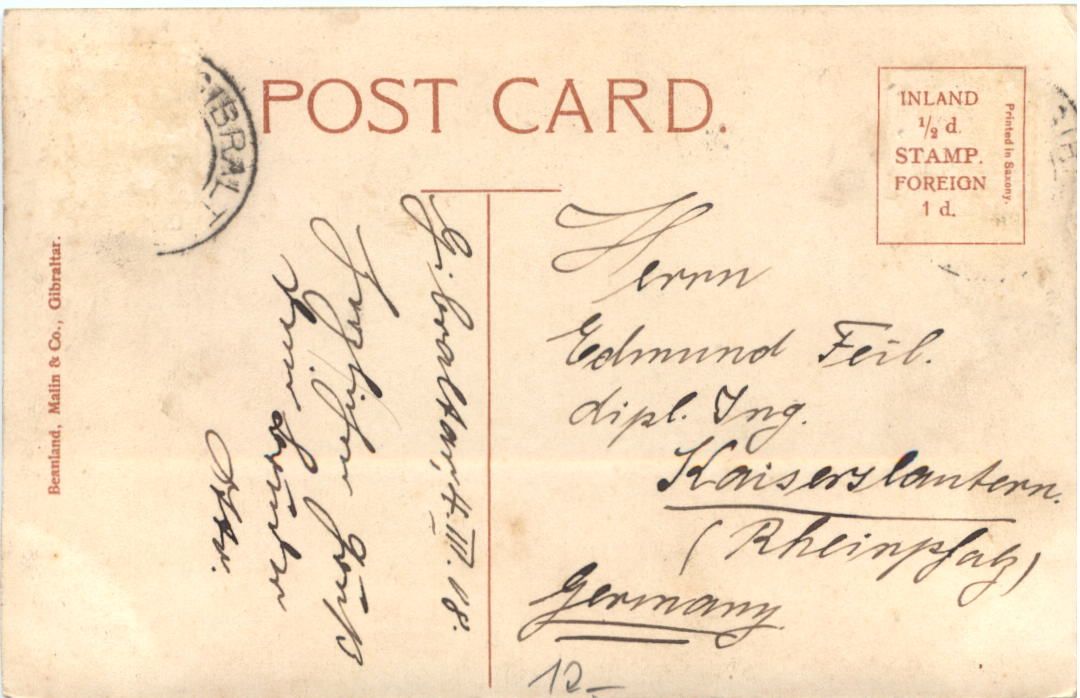 POST CARD.
GIBRALT
INLAND
½ d.
STAMP.
FOREIGN
1 d.
Printed in Saxony.
Beanland, Malin & Co., Gibraltar.
Gibraltar, 4. III. 08.
Herzlichen Gruß
Otto.
Herrn
Edmund Feil.
dipl. Ing.
Kaiserslautern.
(Rheinpfalz)
Germany
12-